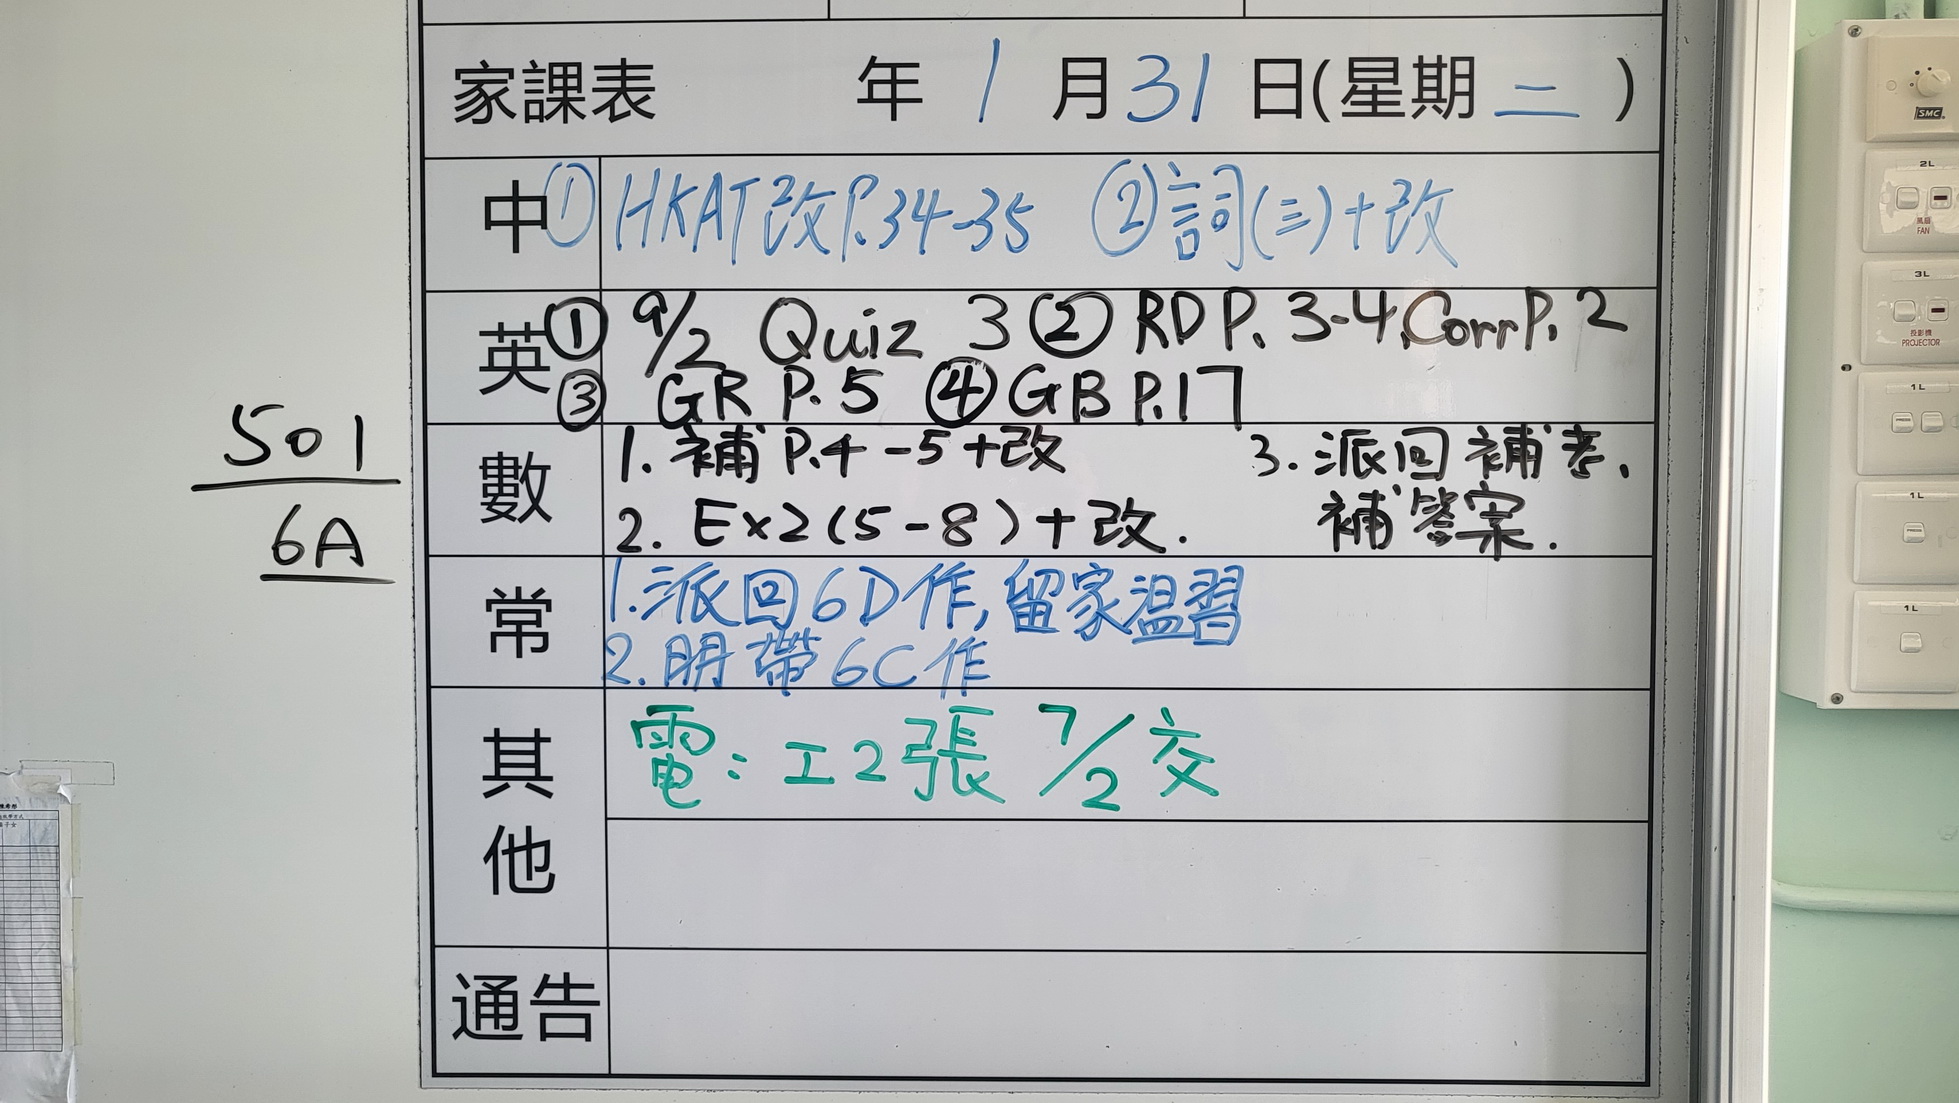 家課表 年 1 月 31 日(星期 二 )
中 ① HKAT改P.34-35 ② 詞(三)+改
英 ① 9/2 Quiz 3 ② RD P. 3-4, Corr P. 2
③ GR P. 5 ④ GB P.17
數 1. 補 P.4-5+改 3. 派回補考,
2. Ex2(5-8)+改. 補答案.
常 1. 派回6D作, 留家温習
2. 明帶6C作
其他 電: 工2張 7/2 交
通告
501
6A
SMC
2L
風扇
FAN
3L
投影機
PROJECTOR
1L
1L
1L